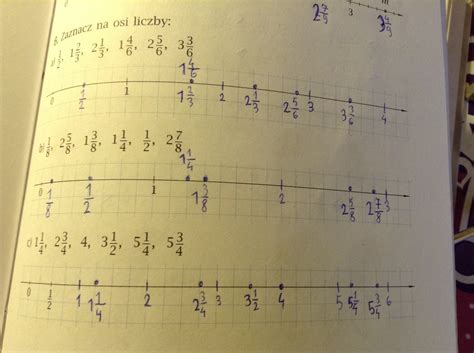 2 7/9 3 3 4/9
8. Zaznacz na osi liczby:
a) 1/2, 1 2/3, 2 1/3, 1 4/6, 2 5/6, 3 3/6
1 4/6
0 1/2 1 1 2/3 2 2 1/3 2 5/6 3 3 3/6 4
b) 1/8, 2 5/8, 1 3/8, 1 1/4, 1/2, 2 7/8
1 1/4
0 1/8 1/2 1 1 3/8 2 2 5/8 2 7/8 3
c) 1 1/4, 2 3/4, 4, 3 1/2, 5 1/4, 5 3/4
0 1/2 1 1 1/4 2 2 3/4 3 3 1/2 4 5 5 1/4 5 3/4 6